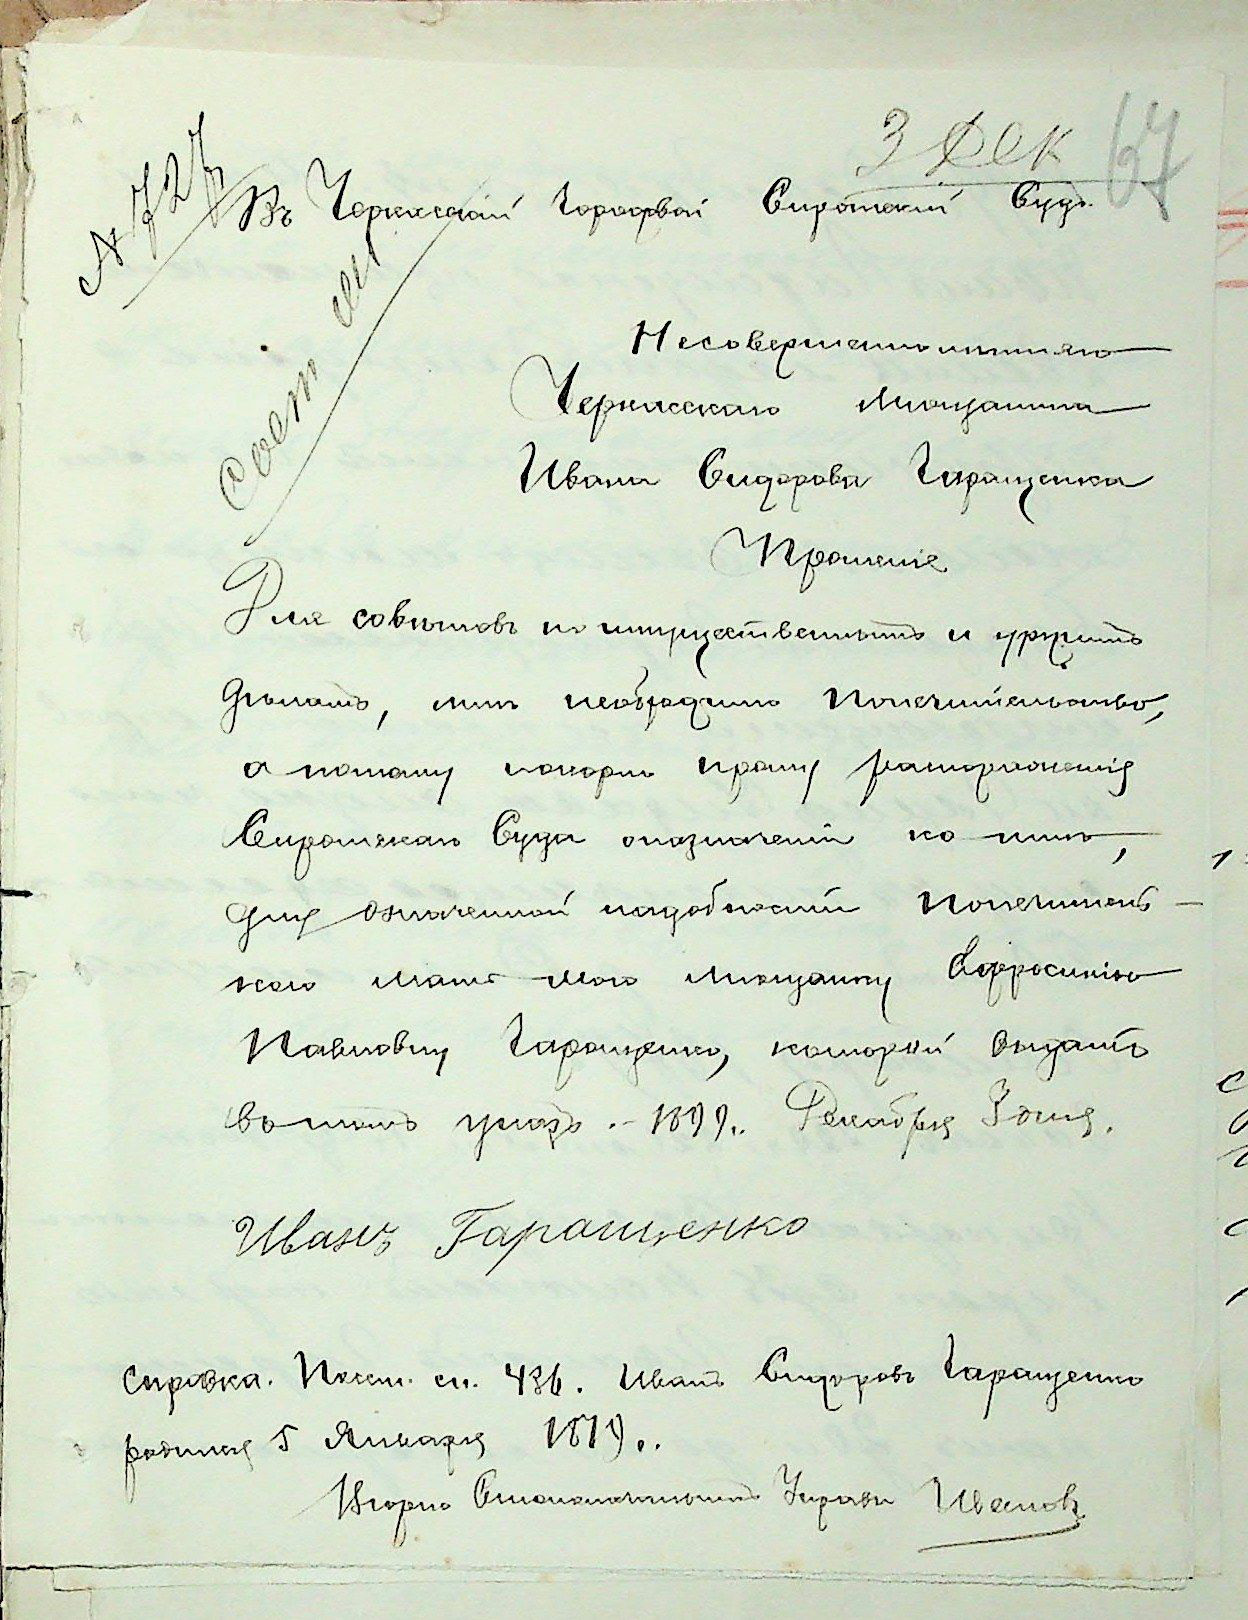 3 Дек
67
№ 727
Въ Черкасскій Городской Сиротскій Судъ.
Несовершеннолѣтняго
Черкасскаго мѣщанина
Ивана Сидорова Гаращенка
Прошеніе
Для совѣтовъ по имущественнымъ и другимъ
дѣламъ, мнѣ необходимо попечительство,
а потому покорно прошу распоряженія
Сиротскаго Суда о назначеніи ко мнѣ,
для означенной надобности попечитель-
кою мать мою мѣщанку Евфросинію
Павловну Гаращенко, которой выдать
въ томъ указъ. - 1899 г. Декабря 3 дня.
Иванъ Гаращенко
Справка. Посем. сп. 436. Иванъ Сидоровъ Гаращенко
родился 5 Января 1879 г.
Вѣрно Управы Ивановъ